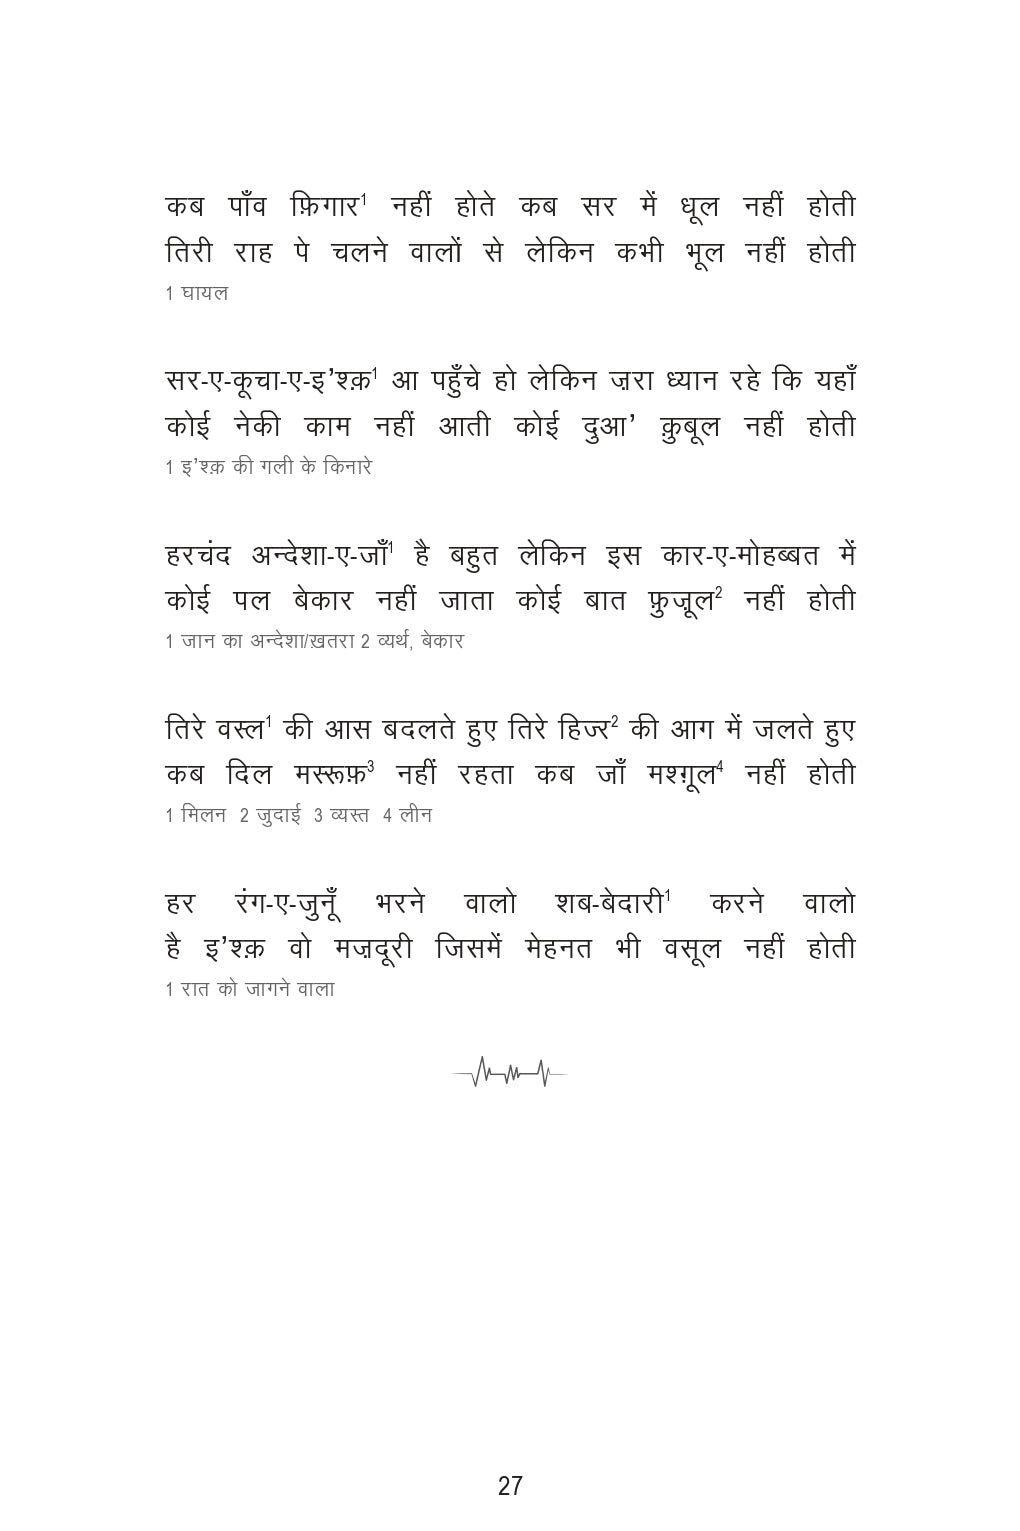 कब पाँव फ़िगार¹ नहीं होते कब सर में धूल नहीं होती
तिरी राह पे चलने वालों से लेकिन कभी भूल नहीं होती
1 घायल
सर-ए-कूचा-ए-इ’श्क़¹ आ पहुँचे हो लेकिन ज़रा ध्यान रहे कि यहाँ
कोई नेकी काम नहीं आती कोई दुआ’ क़ुबूल नहीं होती
1 इ’श्क़ की गली के किनारे
हरचंद अन्देशा-ए-जाँ¹ है बहुत लेकिन इस कार-ए-मोहब्बत में
कोई पल बेकार नहीं जाता कोई बात फ़ुज़ूल² नहीं होती
1 जान का अन्देशा/ख़तरा 2 व्यर्थ, बेकार
तिरे वस्ल¹ की आस बदलते हुए तिरे हिज्र² की आग में जलते हुए
कब दिल मस्रूफ़³ नहीं रहता कब जाँ मश्ग़ूल⁴ नहीं होती
1 मिलन 2 जुदाई 3 व्यस्त 4 लीन
हर रंग-ए-जुनूँ भरने वालो शब-बेदारी¹ करने वालो
है इ’श्क़ वो मज़दूरी जिसमें मेहनत भी वसूल नहीं होती
1 रात को जागने वाला
27